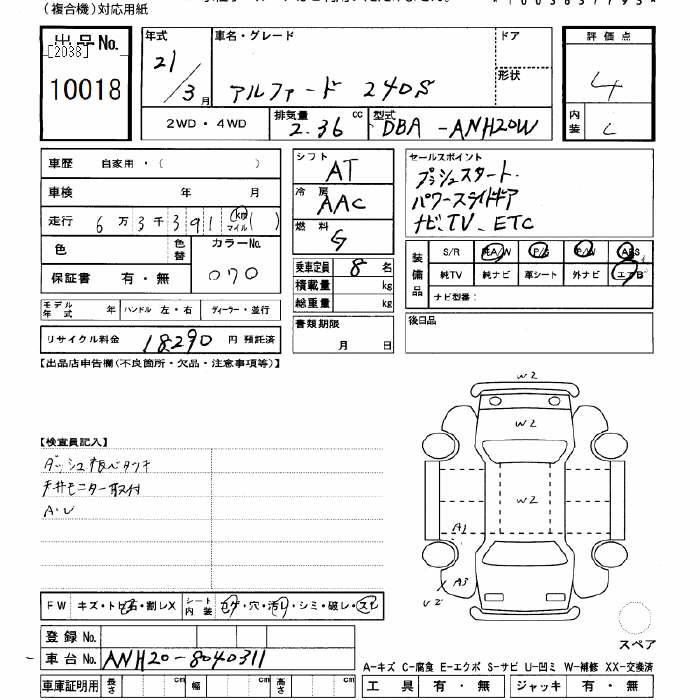 (複合機)対応用紙
出品No.
[2038]
10018
年式 21/3月
車名・グレード アルファード 240S
ドア
形状
2WD・4WD
排気量 2.36 cc
型式 DBA-ANH20W
評価点 4
内装 C
車歴 自家用・( )
車検 年 月
走行 6万3千391 (km マイル)
色
色替
カラーNo. 070
保証書 有・無
モデル年式 年
ハンドル 左・右
ディーラー・並行
リサイクル料金 18290 円 預託済
シフト AT
冷房 AAC
燃料 G
乗車定員 8 名
積載量 kg
総重量 kg
書類期限
月 日
セールスポイント
プッシュスタート.
パワースライドドア
ナビ、TV、ETC
装備品
S/R 純A/W P/S P/W ABS
純TV 純ナビ 革シート 外ナビ エアB
ナビ型番:
後日品
【出品店申告欄(不良箇所・欠品・注意事項等)】
【検査員記入】
天井モニター取付
A・U
FW キズ・トビ石・割レX
シート内装 コゲ・穴・汚レ・シミ・破レ・スレ
登録No.
車台No. ANH20-8040311
車庫証明用 長さ cm 幅 cm 高さ cm
W2
W2
W2
A1
A3
U2
スペア
A-キズ C-腐食 E-エクボ S-サビ U-凹ミ W-補修 XX-交換済
工具 有・無 ジャッキ 有・無